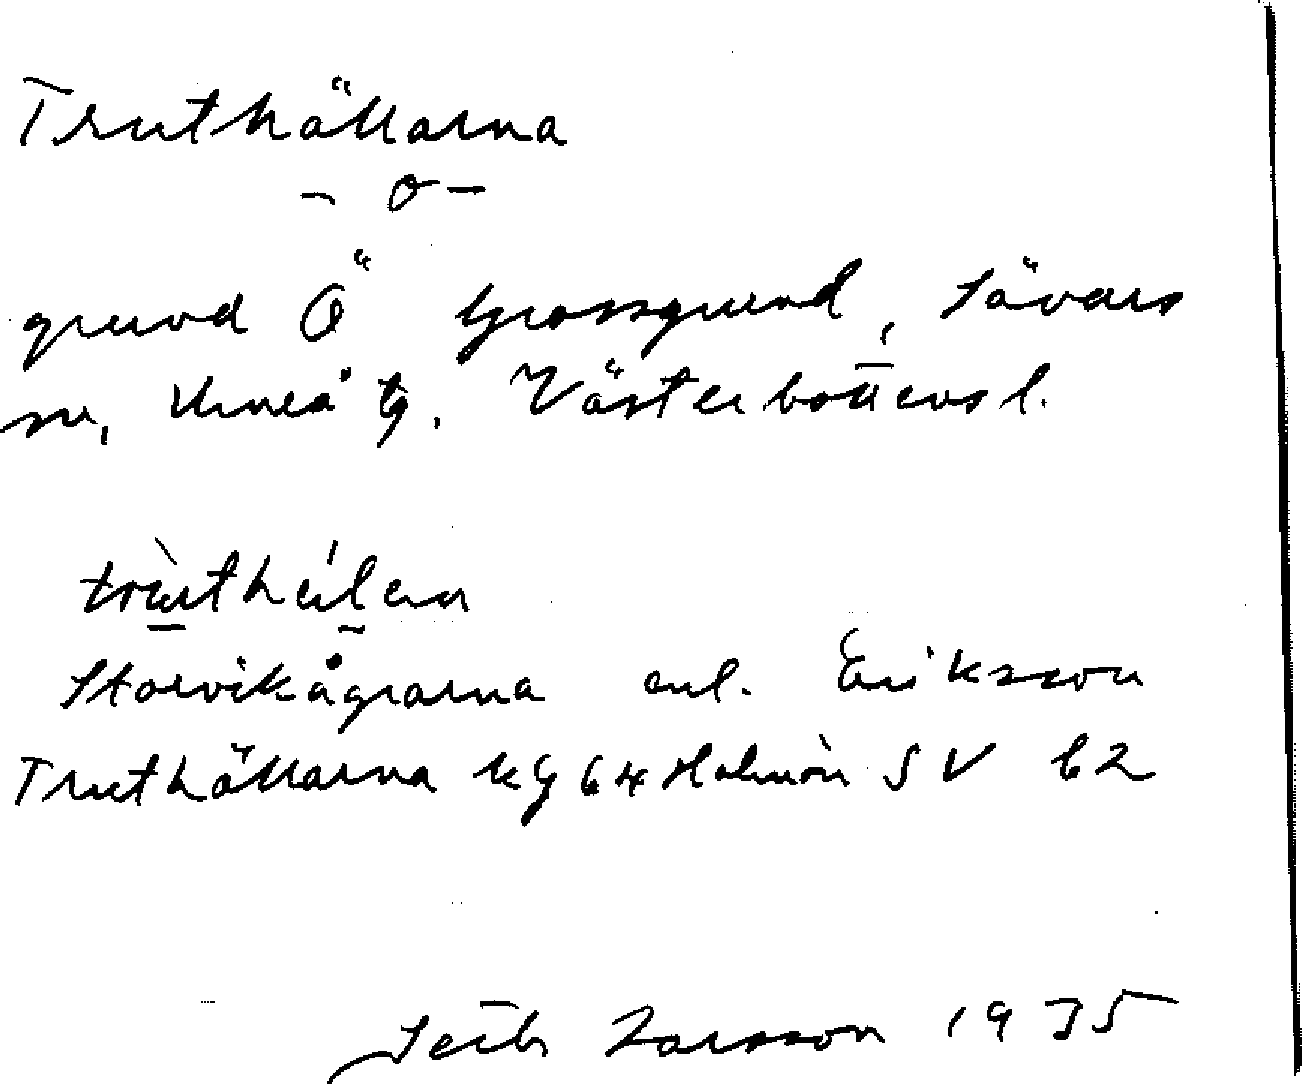 Truthällarna
- o -
grund Ö Grossgrund, Sävars
sn, Umeå tg. Västerbottens l.
Storvikågrarna enl. Eriksson
Truthällarna kg 64 Holmön SV b2
Larsson 1935